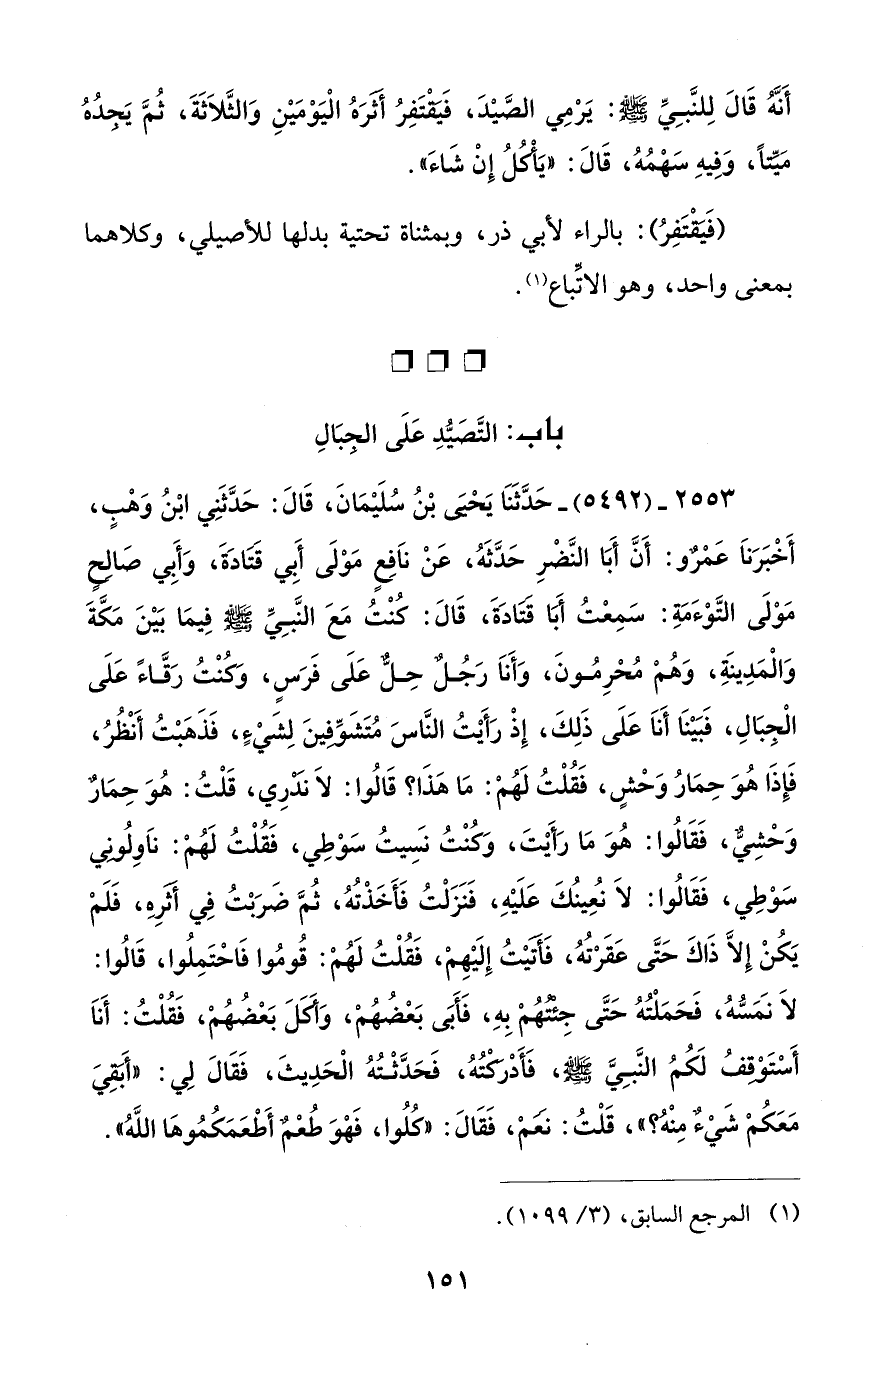 أَنَّهُ قَالَ لِلنَّبِيِّ ﷺ: يَرْمِي الصَّيْدَ، فَيَقْتَفِرُ أَثَرَهُ الْيَوْمَيْنِ وَالثَّلاَثَةَ، ثُمَّ يَجِدُهُ
مَيِّتاً، وَفِيهِ سَهْمُهُ، قَالَ: «يَأْكُلُ إِنْ شَاءَ».
(فَيَقْتَفِرُ): بالراء لأبي ذر، وبمثناة تحتية بدلها للأصيلي، وكلاهما
بمعنى واحد، وهو الاتِّباع(١).
باب: التَّصَيُّدِ عَلَى الجِبَالِ
٢٥٥٣ ـ (٥٤٩٢) ـ حَدَّثَنَا يَحْيَى بْنُ سُلَيْمَانَ، قَالَ: حَدَّثَنِي ابْنُ وَهْبٍ،
أَخْبَرَنَا عَمْرٌو: أَنَّ أَبَا النَّضْرِ حَدَّثَهُ، عَنْ نَافِعٍ مَوْلَى أَبِي قَتَادَةَ، وَأَبِي صَالِحٍ
مَوْلَى التَّوْءَمَةِ: سَمِعْتُ أَبَا قَتَادَةَ، قَالَ: كُنْتُ مَعَ النَّبِيِّ ﷺ فِيمَا بَيْنَ مَكَّةَ
وَالْمَدِينَةِ، وَهُمْ مُحْرِمُونَ، وَأَنَا رَجُلٌ حِلٌّ عَلَى فَرَسٍ، وَكُنْتُ رَقَّاءً عَلَى
الْجِبَالِ، فَبَيْنَا أَنَا عَلَى ذَلِكَ، إِذْ رَأَيْتُ النَّاسَ مُتَشَوِّفِينَ لِشَيْءٍ، فَذَهَبْتُ أَنْظُرُ،
فَإِذَا هُوَ حِمَارُ وَحْشٍ، فَقُلْتُ لَهُمْ: مَا هَذَا؟ قَالُوا: لاَ نَدْرِي، قَلْتُ: هُوَ حِمَارٌ
وَحْشِيٌّ، فَقَالُوا: هُوَ مَا رَأَيْتَ، وَكُنْتُ نَسِيتُ سَوْطِي، فَقُلْتُ لَهُمْ: نَاوِلُونِي
سَوْطِي، فَقَالُوا: لاَ نُعِينُكَ عَلَيْهِ، فَنَزَلْتُ فَأَخَذْتُهُ، ثُمَّ ضَرَبْتُ فِي أَثَرِهِ، فَلَمْ
يَكُنْ إِلاَّ ذَاكَ حَتَّى عَقَرْتُهُ، فَأَتَيْتُ إِلَيْهِمْ، فَقُلْتُ لَهُمْ: قُومُوا فَاحْتَمِلُوا، قَالُوا:
لاَ نَمَسُّهُ، فَحَمَلْتُهُ حَتَّى جِئْتُهُمْ بِهِ، فَأَبَى بَعْضُهُمْ، وَأَكَلَ بَعْضُهُمْ، فَقُلْتُ: أَنَا
أَسْتَوْقِفُ لَكُمُ النَّبِيَّ ﷺ، فَأَدْرَكْتُهُ، فَحَدَّثْتُهُ الْحَدِيثَ، فَقَالَ لِي: «أَبَقِيَ
مَعَكُمْ شَيْءٌ مِنْهُ؟»، قَلْتُ: نَعَمْ، فَقَالَ: «كُلُوا، فَهْوَ طُعْمٌ أَطْعَمَكُمُوهَا اللَّهُ».
(١) المرجع السابق، (٣/ ١٠٩٩).
١٥١